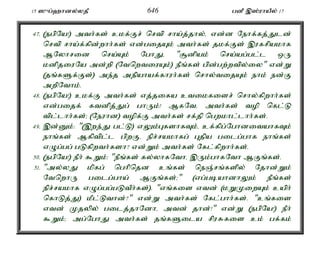 15 ஸுப்ஹானல்லதீ 646 பனீ இஸ்ராயீல் 17
47. (நபியே) அவர்கள் உமக்குச் செவி சாய்த்தால், என்ன நோக்கத்துடன்
செவி சாய்க்கின்றார்கள் என்பதையும் அவர்கள் தமக்குள் இரகசியமாக
ஆலோசனை செய்யும் போது, "சூனியம் செய்யப்பட்ட ஒரு
மனிதரையே அன்றி (வேறெவரையும்) நீங்கள் பின்பற்றவில்லை" என்று
(தங்களுக்குள்) அந்த அநியாயக்காரர்கள் சொல்வதையும் நாம் நன்கு
அறிவோம்.
48. (நபியே) உமக்கு அவர்கள் எத்தகைய உவமைகளைச் சொல்கிறார்கள்
என்பதைக் கவனித்துப் பாரும்! ஆகவே அவர்கள் வழி கெட்டு
விட்டார்கள்; (நேரான) வழிக்கு அவர்கள் சக்தி பெறமாட்டார்கள்.
49. இன்னும்: "(இறந்து பட்டு) எலும்புகளாகவும், உக்கிப்போனவையாகவும்
நாங்கள் ஆகிவிட்ட பிறகு, நிச்சயமாகப் புதிய படைப்பாக நாங்கள்
எழுப்பப் படுகிறவர்களா? என்றும் அவர்கள் கேட்கிறார்கள்.
50. (நபியே) நீர் கூறும்: "நீங்கள் கல்லாகவோ, இரும்பாகவோ ஆகுங்கள்.
51. "அல்லது மிகப் பெரிதென உங்கள் நெஞ்சங்களில் தோன்றும்
வேறொரு படைப்பாய் ஆகுங்கள்:" (எப்படியானாலும் நீங்கள்
நிச்சயமாக எழுப்பப்படுவீர்கள்). "எங்களை எவன் (மறுமுறையும் உயிர்
கொடுத்து) மீட்டுவான்!" என்று அவர்கள் கேட்பார்கள். "உங்களை
எவன் முதலில் படைத்தானோ, அவன் தான்!" என்று (நபியே) நீர்
கூறும்; அப்போது அவர்கள் தங்களுடைய சிரசுகளை உம் பக்கம்